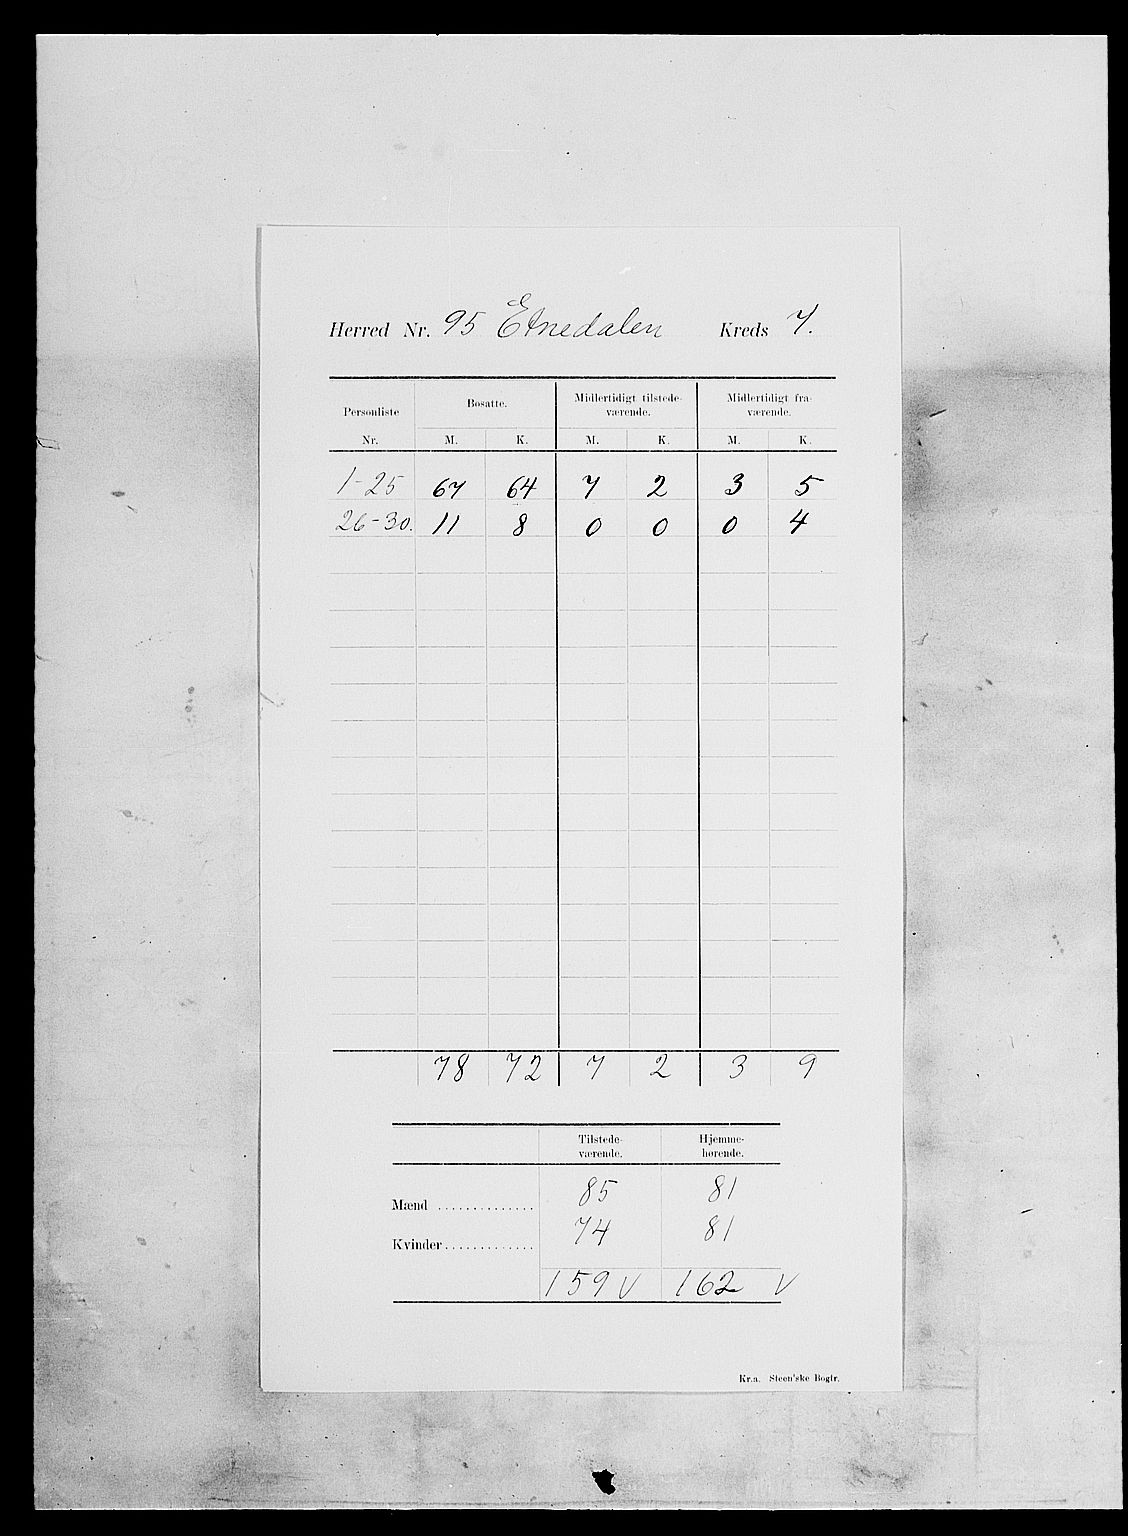 Herred Nr. 95 Etnedalen Kreds 7.
Personliste Nr. Bosatte. Midlertidigt tilstede-værende. Midlertidigt fra-værende.
M. K. M. K. M. K.
1-25 67 64 7 2 3 5
26-30. 11 8 0 0 0 4
78 72 7 2 3 9
Tilstede-værende. Hjemme-hørende.
Mænd .............. 85 81
Kvinder ............. 74 81
159 V 162 V
Kr.a. Steen'ske Bogtr.